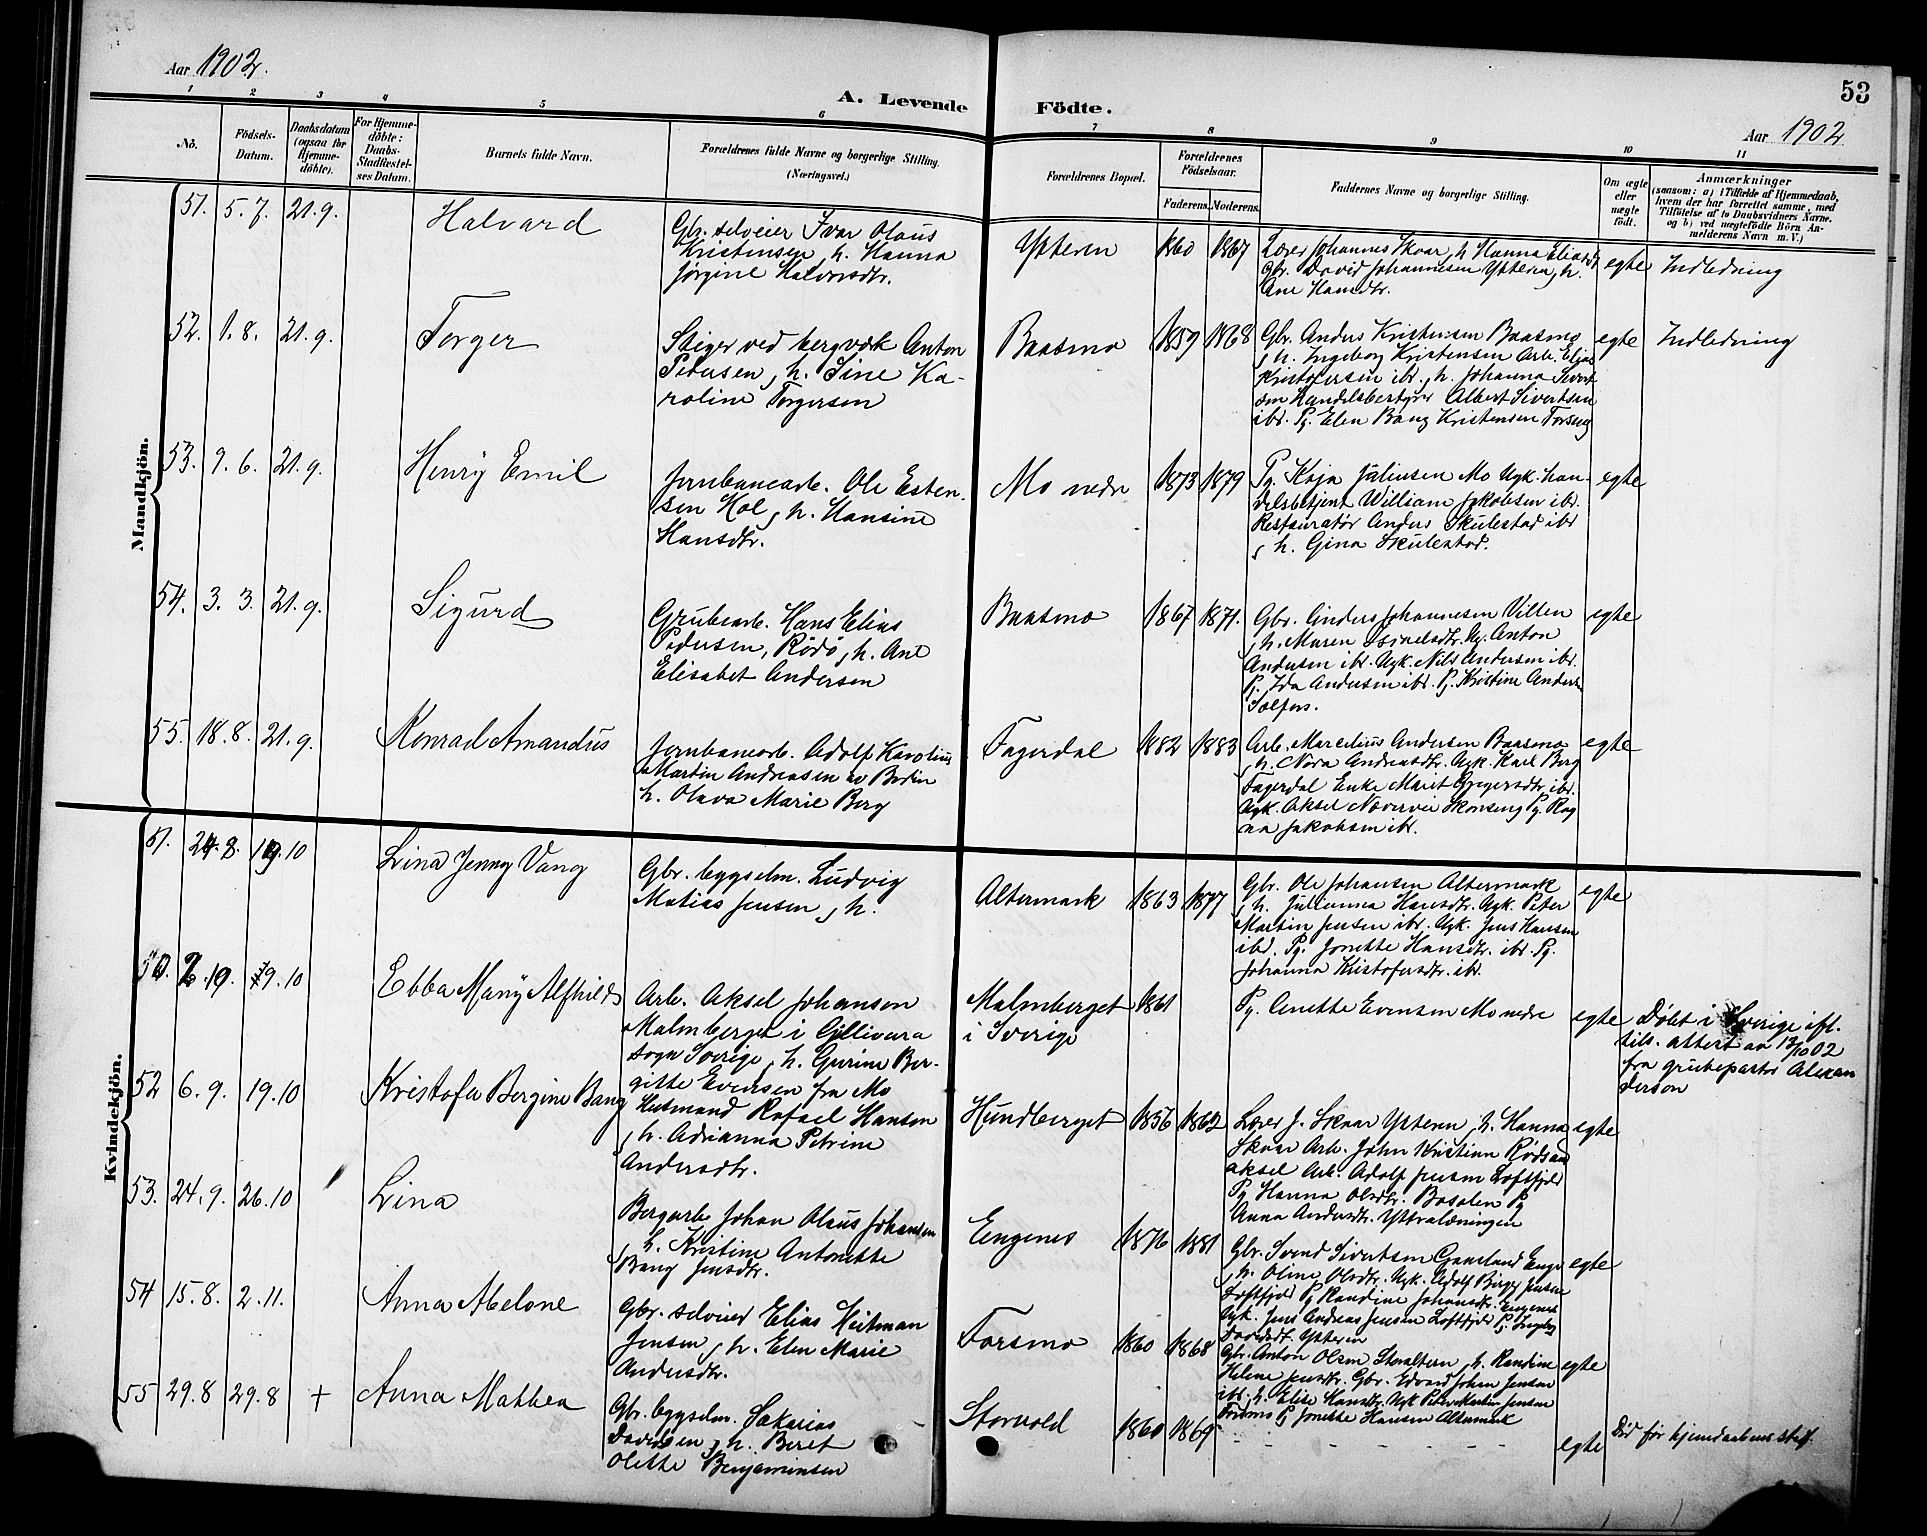 Aar 1902.
A. Levende Födte.
53
Aar 1902
1 2 3 4 5 6 7 8 9 10 11
No.
Födsels-
Datum.
Daabsdatum
(ogsaa for
hjemme-
döbte).
For Hjemme-
döbte:
Daabs-
Stadfæstel-
ses Datum.
Barnets fulde Navn.
Forældrenes fulde Navne og borgerlige Stilling.
(Næringsvei.)
Forældrenes Bopæl.
Forældrenes
Födselsaar.
Faderens. Moderens.
Faddernes Navne og borgerlige Stilling.
Om ægte
eller
uægte
födt.
Anmærkninger
(saasom: a) i Tilfælde af Hjemmedaab,
hvem der har forrettet samme, med
Tilföielse af to Daabsvidners Navne,
og b) ved uægtefödte Börn An-
melderens Navn m. V.)
Mandkjön.
51. 5. 7. 21. 9. Halvard
Gbr. selveier Ivar Olaus
Kristensen, h. Hanna
Jørgine Halvorsdtr.
Ytteren 1860 1867
Lærer Johannes Skaar, h. Hanna Eliasdt
Gbr. David Johannesen Ytteren, h.
Ane Hansdtr.
egte Indledning
52. 1. 8. 21. 9. Torger
Stiger ved bergverk Anton
Pedersen, h. Sine Ka-
roline Torgersen
Baasmo 1859 1868
Gbr. Anders Kristensen Baasmo
, h. Ingeborg Kristensen Arb. Elias
Kristofersen ibr., h. Johanna Sivert
sen Handelsbetjent Albert Sivertsen
ibr. Pg. Elen Bang Kristensen
egte Indledning
53. 9. 6. 21. 9. Henry Emil
Jernbanearb. Ole Esten-
sen Hol, h. Hansine
Hansdtr.
Mo nedre 1873 1879
Pg. Kaja Juliusen Mo Ugk. han-
delsbetjent William Jakobsen ibr.
Restauratør Anders Skulestad ibr
, h. Gina Skulestad.
egte
54. 3. 3. 21. 9. Sigurd
Grubearb. Hans Elias
Pedersen, Rødø, h. Ane
Elisabet Andersen
Baasmo 1867 1871.
Gbr. Anders Johannesen Villen
, h. Maren Ug. Anton
Andersen ibr. Ugk. Nils Andersen ibr.
Pg. Ida Andersen ibr. Pg. Kristine Anders
Sælfors.
egte
55. 18. 8. 21. 9. Konrad Amandus
Jernbanearb. Adolf Karolius
Martin Andreasen av Bodin
h. Olava Marie Berg
Fagerdal 1882 1883
Arb. Marcelius Andersen Baasmo
, h. Nora Andreasdtr. Ugk. Karl Berg
Fagerdal Enke Marit ibr.
Ugk. Aksel Nævernes Skonseng Pg. Rag
na Jakobsen ibr.
egte
Kvindekjön.
51. 24. 8. 19. 10 Lina Jenny Vang
Gbr. bygselm. Ludvig
Matias Jensen, h.
Altermark 1863 1877
Gbr. Ole Johansen Altermark
, h. Julianna Hansdtr. Ugk. Peter
Martin Jensen ibr. Ugk. Jens Hansen
ibd. Pg. Jonette Hansdtr. ibr. Pg.
Johanna Kristofersdtr. ibr.
egte
19. 10 Ebba Mary Alfhild
Arb. Aksel Johanson
Malmberget i Gellivara
sogn Sverige, h. Gurine Ber-
gitte Evensen fra Mo
Malmberget
i Sverige
1861
Pg. Anette Evensen Mo nedre
egte
Døbt i Sverige ifl.
tils. attest av 13/10 02
fra grubepastor Alexan
derson
52 6. 9. 19. 10 Kristofa Bergine Bang
Husmand Rafael Hansen
, h. Adrianna Petrine
Andersdtr.
Hundberget 1856 1862
Lærer J. Skaar Ytteren, h. Hanna
Skaar Arb. John Kristian Rødsand
aksel Arb. Adolf Jensen Loftfjeld
Pg. Hanna Olsdtr. Basalen Pg
Anna Andersdtr. Yttralæningen
egte
53. 24. 9. 26. 10 Lina
Bergarb. Johan Olaus Johansen
, h. Kristine Antonette
Bang Jensdtr.
Engenes 1876 1881
Gbr. Svend Sivertsen Grønland Enge
, h. Oline Olsdtr. Ugk. Adolf Birger Jensen
Loftfjeld Pg. Randine Johansdtr. Engenes
Ugk. Jens Andreas Jensen Loftfjeld Pg. Ingeborg
Davidsdt. Ytteren
egte
54 15. 8. 2. 11. Anna Abelone
Gbr. selveier Elias Heitman
Jensen, h. Elen Marie
Andersdtr.
Forsmo 1860 1868
Gbr. Anton Olsen Storaltern, h. Randine
Helene Jensdtr. Gbr. Edvard Johan Jensen
ibr., h. Elise Hansdtr. Ugk Peter Martin Jensen
Forsmo Pg. Jonette Hansen Altermark
egte
55 29. 8 29. 8 + Anna Mathea
Gbr. bygselm. Sakarias
Davidsen, h. Beret
Olette Benjaminsen
Storvold 1860 1869
egte
Død før hjemdaabens staf.